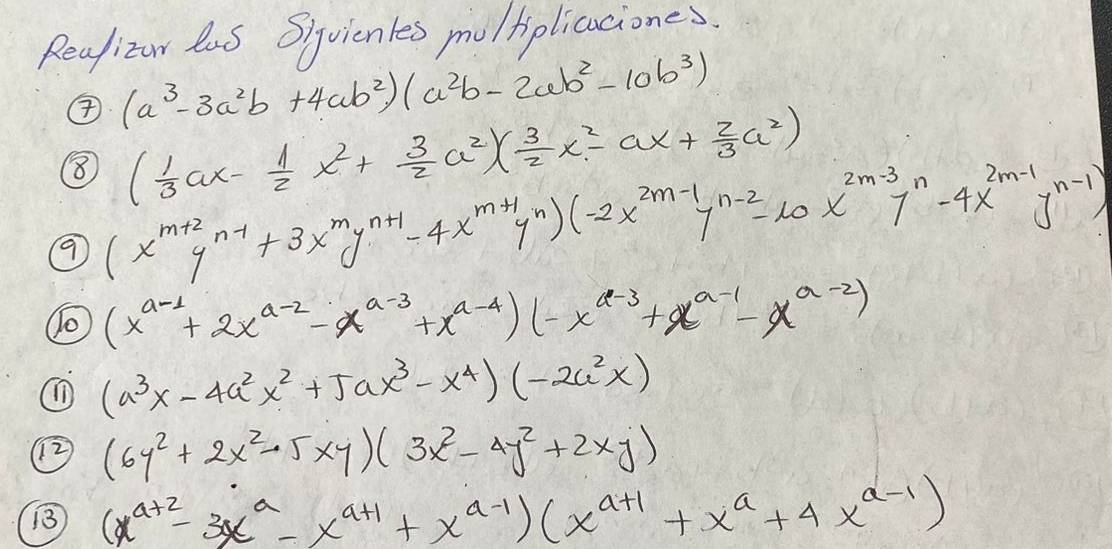 Realizar las Siguientes multiplicaciones.
⑦ (a³ - 3a²b + 4ab²)(a²b - 2ab² - 10b³)
⑧ (1/3 ax - 1/2 x² + 3/2 a²)(3/2 x² - ax + 2/3 a²)
⑨ (x^{m+2} y^{n-1} + 3x^m y^{n+1} - 4x^{m+1} y^n)(-2x^{2m-1} y^{n-2} - 10x^{2m-3} y^n - 4x^{2m-1} y^{n-1})
⑩ (x^{a-1} + 2x^{a-2} - x^{a-3} + x^{a-4})(-x^{a-3} + x^{a-1} - x^{a-2})
⑪ (a³x - 4a²x² + 5ax³ - x⁴)(-2a²x)
⑫ (6y² + 2x² - 5xy)(3x² - 4y² + 2xy)
⑬ (x^{a+2} - 3x^a - x^{a+1} + x^{a-1})(x^{a+1} + x^a + 4x^{a-1})